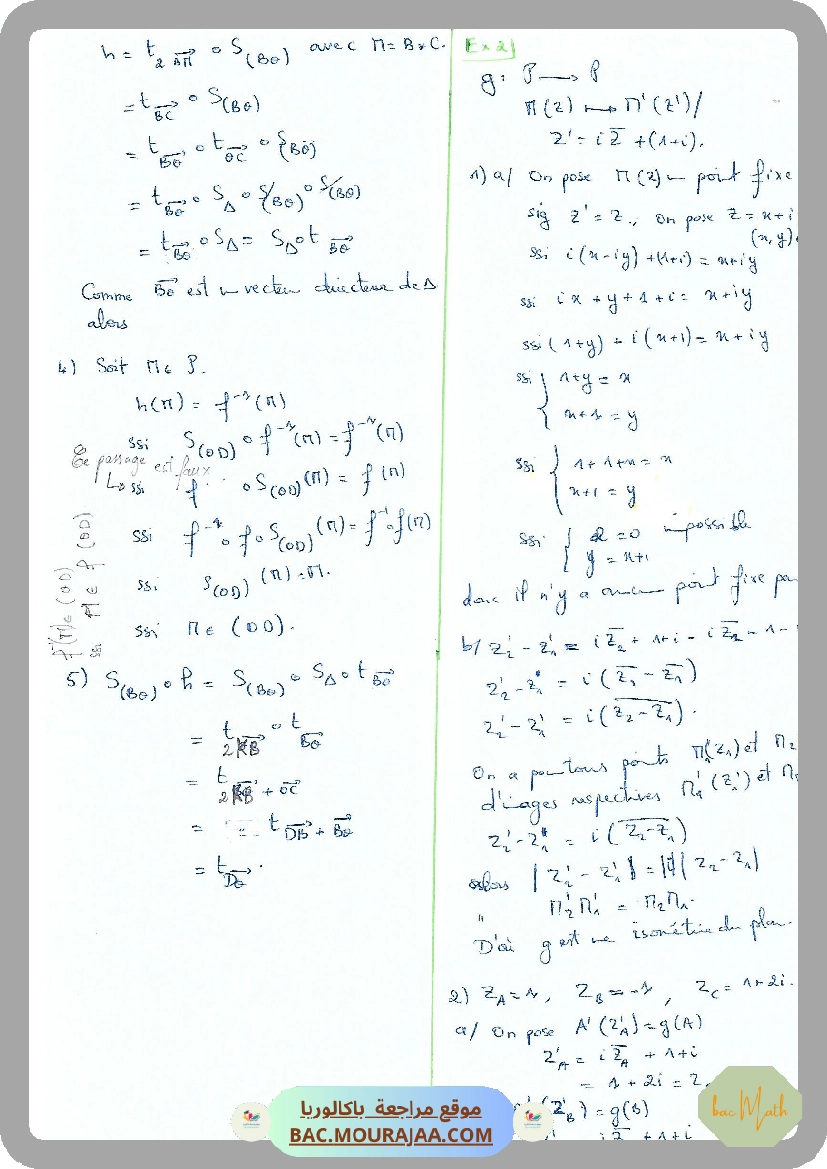 h = t_{2 \overrightarrow{BM}} o S_{(BO)} avec M = B * C.
= t_{\overrightarrow{BC}} o S_{(BO)}
= t_{\overrightarrow{BO}} o t_{\overrightarrow{OC}} o S_{(BO)}
= t_{\overrightarrow{BO}} o S_Δ o S_{(BO)} o S_{(BO)}
= t_{\overrightarrow{BO}} o S_Δ = S_Δ o t_{\overrightarrow{BO}}
Comme \overrightarrow{BO} est un vecteur directeur de Δ
alors
4) Soit M ∈ P.
h(M) = f^{-1}(M)
ssi S_{(OD)} o f^{-1}(M) = f^{-1}(M)
Ce passage est faux
↳ ssi f o S_{(OD)}(M) = f(M)
ssi f^{-1} o f o S_{(OD)}(M) = f^{-1} o f(M)
ssi S_{(OD)}(M) = M.
ssi M ∈ (OD).
f^{-1}(M) ∈ (OD)
ssi M ∈ f(OD)
5) S_{(BO)} o h = S_{(BO)} o S_Δ o t_{\overrightarrow{BO}}
= t_{2\overrightarrow{KB}} o t_{\overrightarrow{BO}}
= t_{2\overrightarrow{KB} + \overrightarrow{OC}}
= t_{\overrightarrow{DB} + \overrightarrow{BO}}
= t_{\overrightarrow{DO}}.
Ex 2)
g : P → P
M(z) ↦ M'(z') /
z' = i\overline{z} + (1+i).
1) a/ On pose M(z) un point fixe
sig z' = z., on pose z = x + i
(x, y)
ssi i(x - iy) + (1+i) = x + iy
ssi ix + y + 1 + i = x + iy
ssi (1+y) + i(x+1) = x + iy
ssi { 1 + y = x
x + 1 = y
ssi { 1 + 1 + x = x
x + 1 = y
ssi { 2 = 0 impossible
y = x + 1
donc il n'y a aucun point fixe pa
b/ z'_2 - z'_1 = i\overline{z_2} + 1 + i - i\overline{z_1} - 1 -
z'_2 - z'_1 = i(\overline{z_2} - \overline{z_1})
z'_2 - z'_1 = i(\overline{z_2 - z_1}).
On a pour tous points M_1(z_1) et M_2
d'images respectives M'_1(z'_1) et M
z'_2 - z'_1 = i(\overline{z_2 - z_1})
alors |z'_2 - z'_1| = |i| |z_2 - z_1|
" M'_2M'_1 = M_2M_1.
D'où g est une isométrie du plan.
2) z_A = 1, z_B = -1, z_C = 1 + 2i.
a/ On pose A'(z'_A) = g(A)
z'_A = i\overline{z_A} + 1 + i
= 1 + 2i = z
'(z'_B) = g(B)
i\overline{z} + 1 + i
bac Math
موقع مراجعة باكالوريا
BAC.MOURAJAA.COM